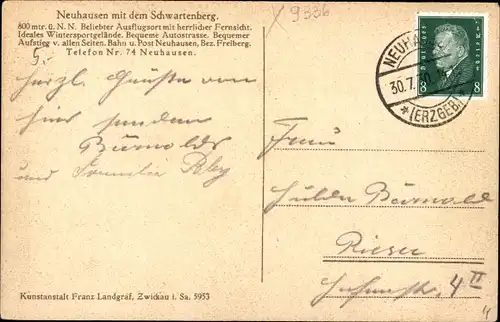 x 9336
Neuhausen mit dem Schwartenberg.
800 mtr. ü. N. N. Beliebter Ausflugsort mit herrlicher Fernsicht.
Ideales Wintersportgelände. Bequeme Autostrasse. Bequemer
Aufstieg v. allen Seiten. Bahn u. Post Neuhausen, Bez. Freiberg.
Telefon Nr. 74 Neuhausen.
5.-
NEUHA
30.7.30
*(ERZGEB.
8 8
herzl. Grüße von
hier senden
Bärwalds
und Familie
Frau
Hulda Bärwald
Riesa
4 II
Kunstanstalt Franz Landgraf, Zwickau i. Sa. 5953